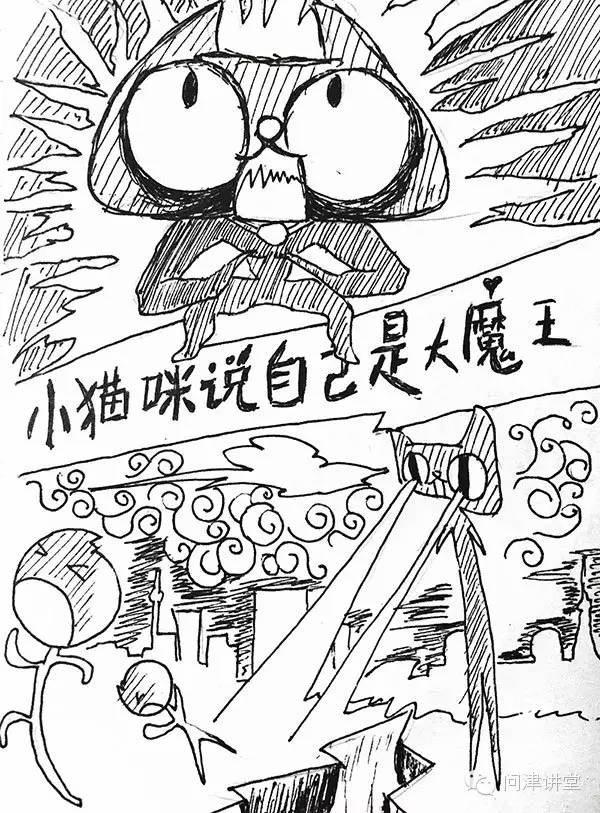 小猫咪说自己是大魔王
问津讲堂